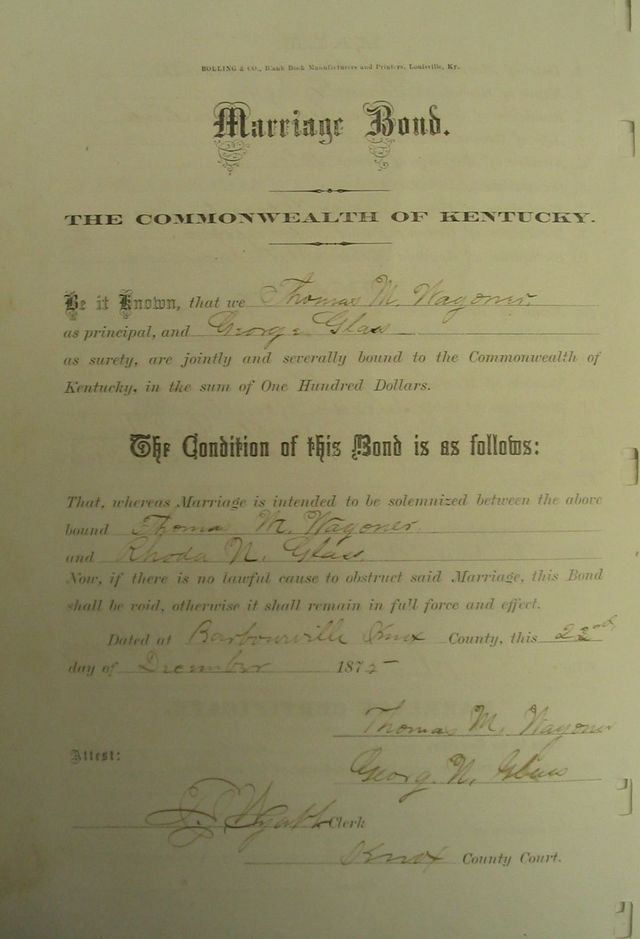 BOLLING & CO., Blank Book Manufacturers and Printers, Louisville, Ky.
Marriage Bond.
THE COMMONWEALTH OF KENTUCKY.
Be it Known, that we Thomas M. Wagoner
as principal, and George Glass
as surety, are jointly and severally bound to the Commonwealth of
Kentucky, in the sum of One Hundred Dollars.
The Condition of this Bond is as follows:
That, whereas Marriage is intended to be solemnized between the above
bound Thomas M. Wagoner
and Rhoda N. Glass
Now, if there is no lawful cause to obstruct said Marriage, this Bond
shall be void, otherwise it shall remain in full force and effect.
Dated at Barbourville Knox County, this 22nd
day of December 1875
Thomas M. Wagoner
Attest:
Georg. N. Glass
Wyatt Clerk
Knox County Court.